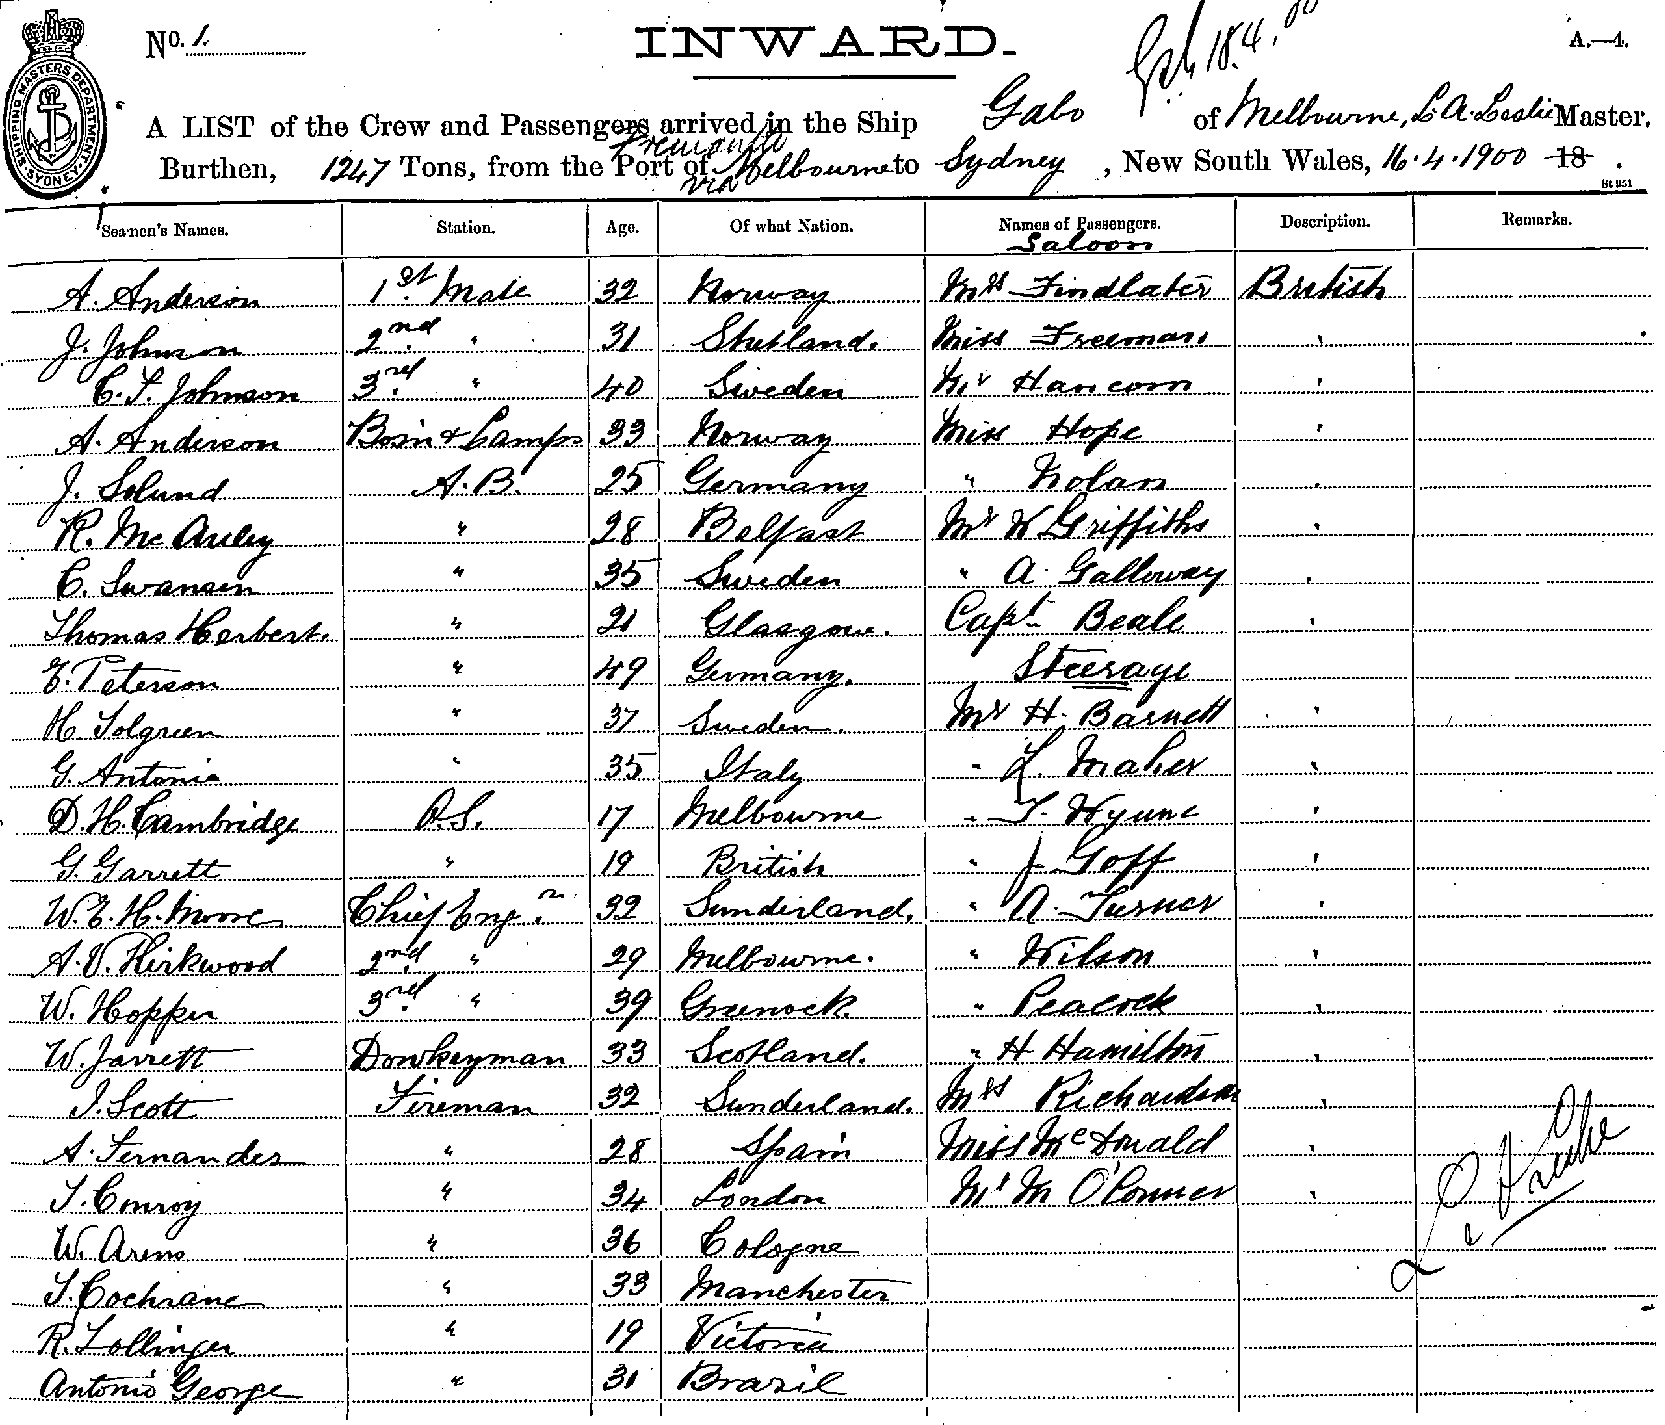 No. 1. INWARD. A.—4.
18.4.00
SHIPPING MASTERS DEPARTMENT. SYDNEY.
A LIST of the Crew and Passengers arrived in the Ship Gabo of Melbourne, L. A. Leslie Master,
Burthen, 1247 Tons, from the Port of Fremantle via Melbourne to Sydney, New South Wales, 16.4.1900 18 .
Seamen's Names. Station. Age. Of what Nation. Names of Passengers. Description. Remarks.
Saloon
A. Anderson 1st. Mate 32 Norway Mrs Findlater British
J. Johnson 2nd. " 31 Shetland. Miss Freeman "
C. F. Johnson 3rd. " 40 Sweden Mr Hancorn "
A. Anderson Bosn & Lamps 33 Norway Miss Hope "
J. Solund A.B. 25 Germany " Nolan "
R. Mc Auley " 28 Belfast Mr W Griffiths "
C. Swansen " 35 Sweden " A. Galloway "
Thomas Herbert. " 21 Glasgow. Capt. Beale "
E. Peterson " 49 Germany. Steerage
H. Solgreen " 37 Sweden. Mr H. Barnett "
G. Antonie " 35 Italy " L. Maher "
D. H. Cambridge O.S. 17 Melbourne " T. Wynne "
G. Garrett " 19 British " J Goff "
W. E. H. Moore Chief Engr. 32 Sunderland. " A. Turner "
A. V. Kirkwood 2nd. " 29 Melbourne. " Wilson "
W. Hopper 3rd. " 39 Greenock. " Peacock "
W. Jarrett Donkeyman 33 Scotland. " H Hamilton "
J. Scott Fireman 32 Sunderland. Mrs Richardson "
A. Fernandes " 28 Spain Miss McDonald "
T. Conroy " 34 London Mr M O'Conner "
W. Arens " 36 Cologne
T. Cochrane " 33 Manchester
R. Lollinger " 19 Victoria
Antonio George " 31 Brazil